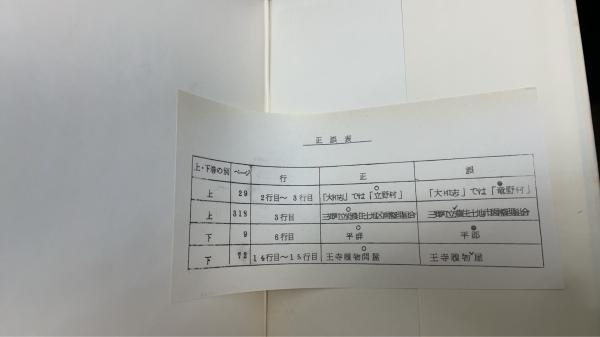 正誤表
上・下巻の別 ページ 行 正 誤
上 29 2行目〜3行目 「大和志」では「立野村」 「大和志」では「竜野村」
上 318 3行目 三郷町立
下 9 6行目 平群 平郡
下 72 14行目〜15行目 王寺履物問屋 王寺履物屋